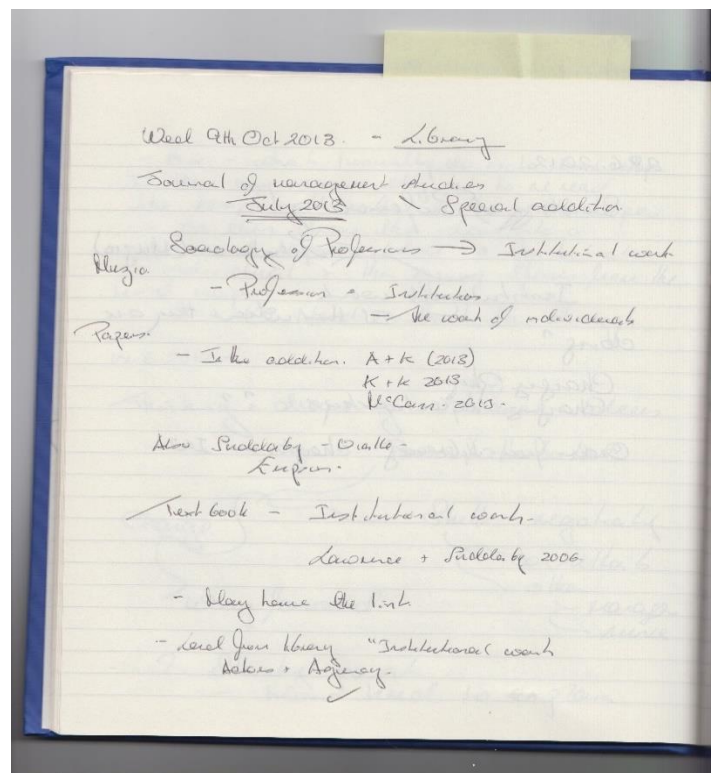 Week 9th Oct 2013. - Library
Journal of management studies
July 2013 \ Special addition
Sociology of Professions → Institutional work
Muzio
- Professions + Institutions
- the work of individuals
Papers.
- In the addition. A + K (2013)
K + K 2013
McCann. 2013.
Also Suddaby - Vialle -
Empson.
Text book - Institutional work.
Lawrence + Suddaby 2006.
- May have the link
- Lend from library "Institutional work
Actors + Agency.